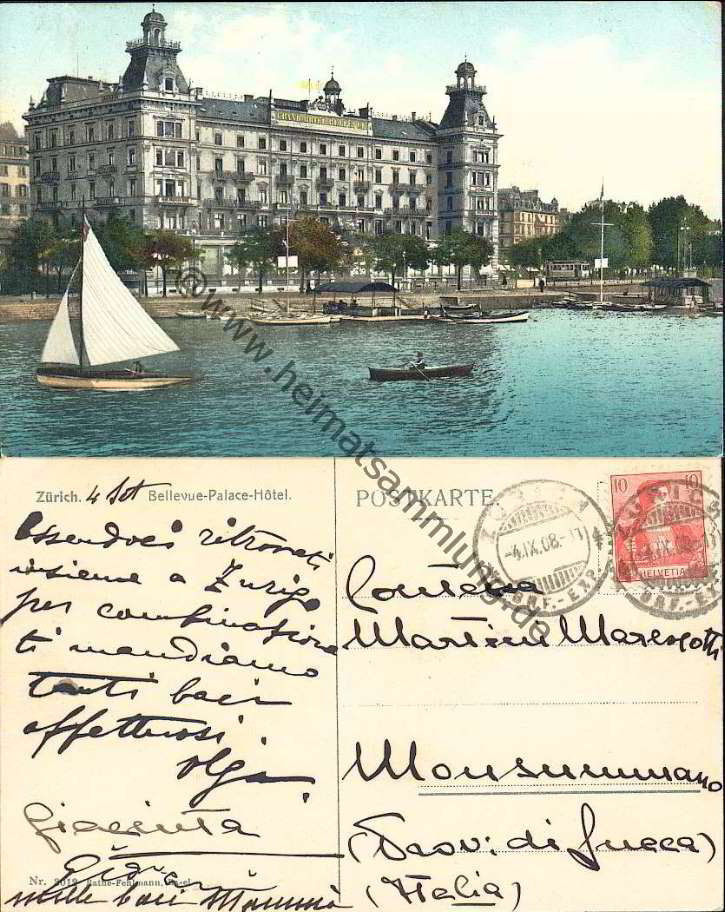 GRAND HOTEL BELLEVUE
@www.heimatsammlung.de
Zürich. 4 Set Bellevue-Palace-Hôtel.
Essendoci ritrovati
insieme a Zurigo
per combinazione
ti mandiamo
tanti baci
affettuosi.
Olga
Giacinta
Nr. 2012 Rathe-Fehlmann, Basel
mille baci Mammà
POSTKARTE
-4.IX.08.-11
BRF.-EXP.
10 10
HELVETIA
Contessa
Martini Marescotti
Monsummano
(Prov. di Lucca)
(Italia)